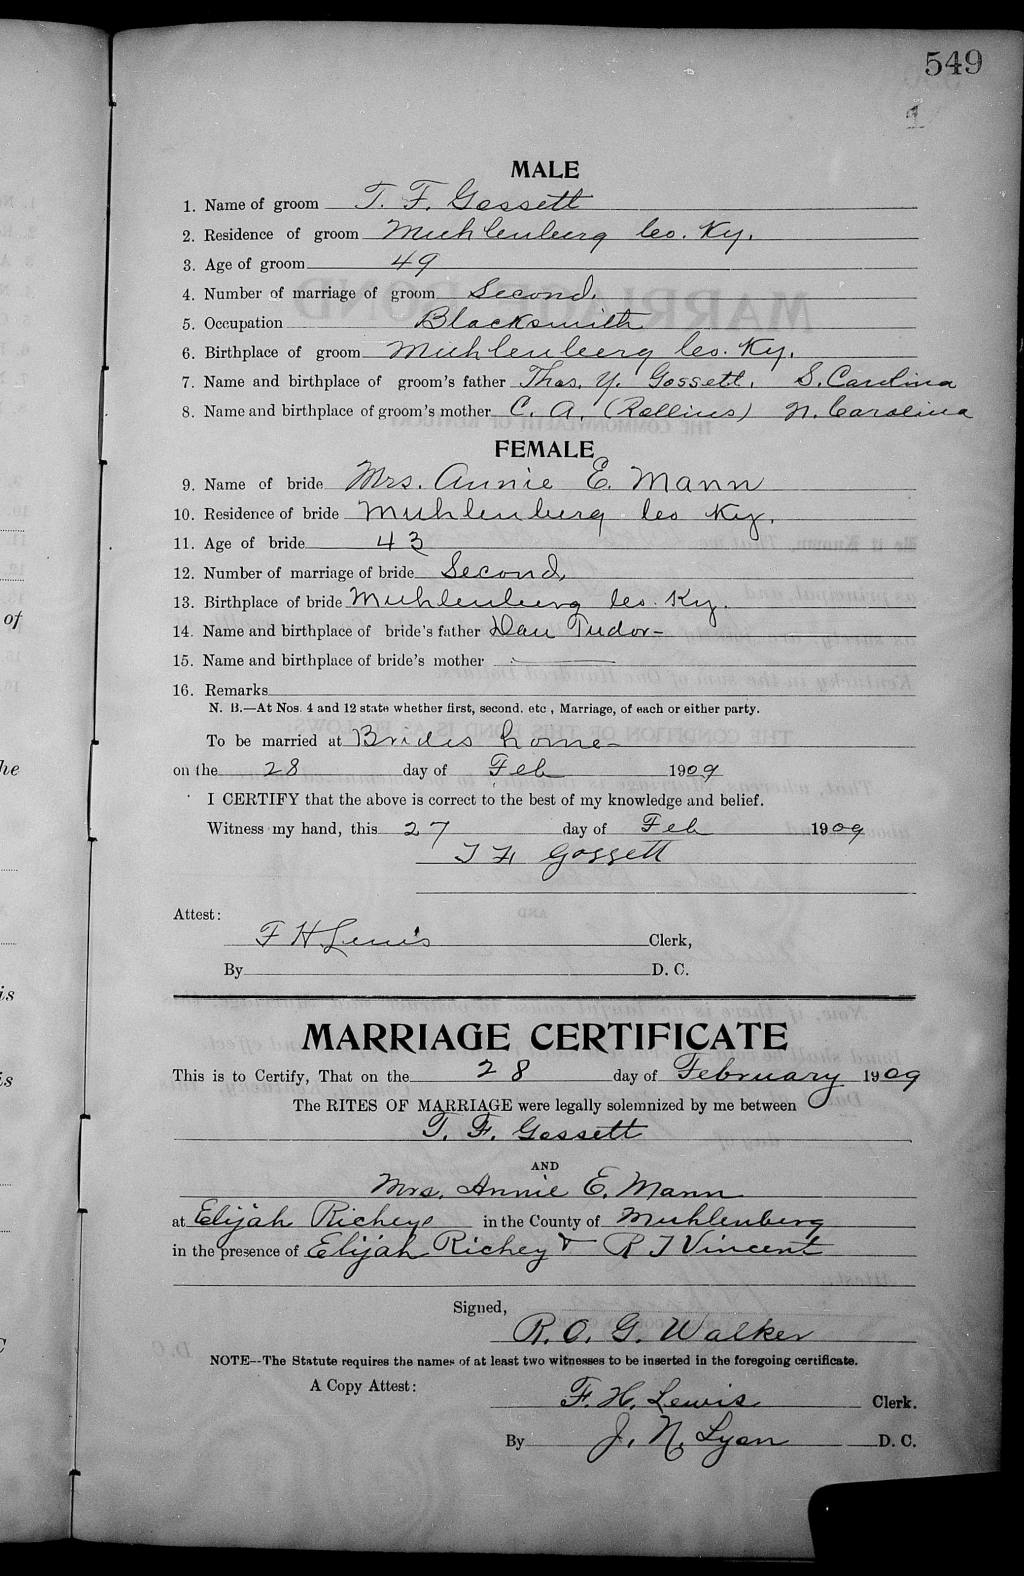 549
1
MALE
1. Name of groom T. F. Gossett
2. Residence of groom Muhlenberg Co. Ky.
3. Age of groom 49
4. Number of marriage of groom Second.
5. Occupation Blacksmith
6. Birthplace of groom Muhlenberg Co. Ky.
7. Name and birthplace of groom's father Thos. Y. Gossett. S. Carolina
8. Name and birthplace of groom's mother C. A. (Rollins) N. Carolina
FEMALE
9. Name of bride Mrs. Annie E. Mann
10. Residence of bride Muhlenberg Co Ky.
11. Age of bride 43
12. Number of marriage of bride Second,
13. Birthplace of bride Muhlenberg Co. Ky.
14. Name and birthplace of bride's father Dan Tudor-
15. Name and birthplace of bride's mother
16. Remarks
N. B.—At Nos. 4 and 12 state whether first, second, etc., Marriage, of each or either party.
To be married at Brides home-
on the 28 day of Feb 1909
I CERTIFY that the above is correct to the best of my knowledge and belief.
Witness my hand, this 27 day of Feb 1909
T F Gossett
Attest:
F H Lewis Clerk,
By D. C.
MARRIAGE CERTIFICATE
This is to Certify, That on the 28 day of February 1909
The RITES OF MARRIAGE were legally solemnized by me between
T. F. Gossett
AND
Mrs. Annie E. Mann
at Elijah Richeys in the County of Muhlenberg
in the presence of Elijah Richey & R T Vincent
Signed,
R. O. G. Walker
NOTE--The Statute requires the names of at least two witnesses to be inserted in the foregoing certificate.
A Copy Attest:
F. H. Lewis Clerk.
By J. N. Lyon D. C.